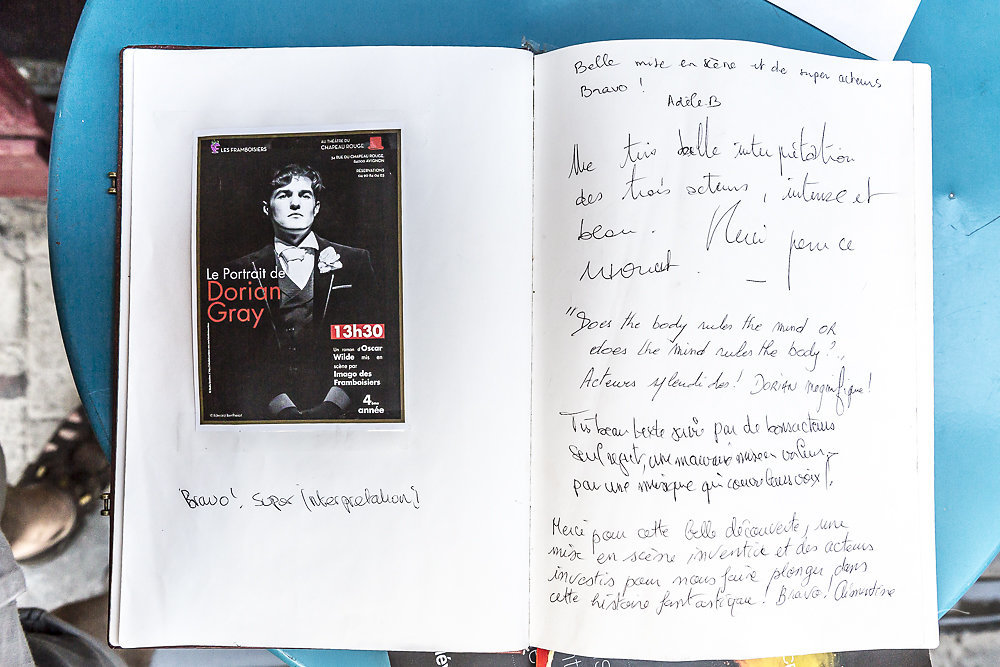 LES FRAMBOISIERS
AU THÉÂTRE DU
CHAPEAU ROUGE
34 RUE DU CHAPEAU ROUGE,
84000 AVIGNON
RÉSERVATIONS
Le Portrait de
Dorian
Gray
13h30
Un roman d'Oscar
Wilde mis en
scène par
Imago des
Framboisiers
4ème
année
Bravo! Super interpretation!
Belle mise en scène et de super acteurs
Bravo !
Adèle B
Une très belle interprétation
des trois acteurs, intense et
beau. Merci pour ce
moment.
"Does the body rules the mind or
does the mind rules the body?"
Acteurs splendides! DORIAN magnifique!
Très beau texte suivi par de bons acteurs
Seul regret, une mauvaise mise en valeur
par une musique qui couvre leurs voix!
Merci pour cette belle découverte, une
mise en scène inventive et des acteurs
investis pour nous faire plonger dans
cette histoire fantastique! Bravo!